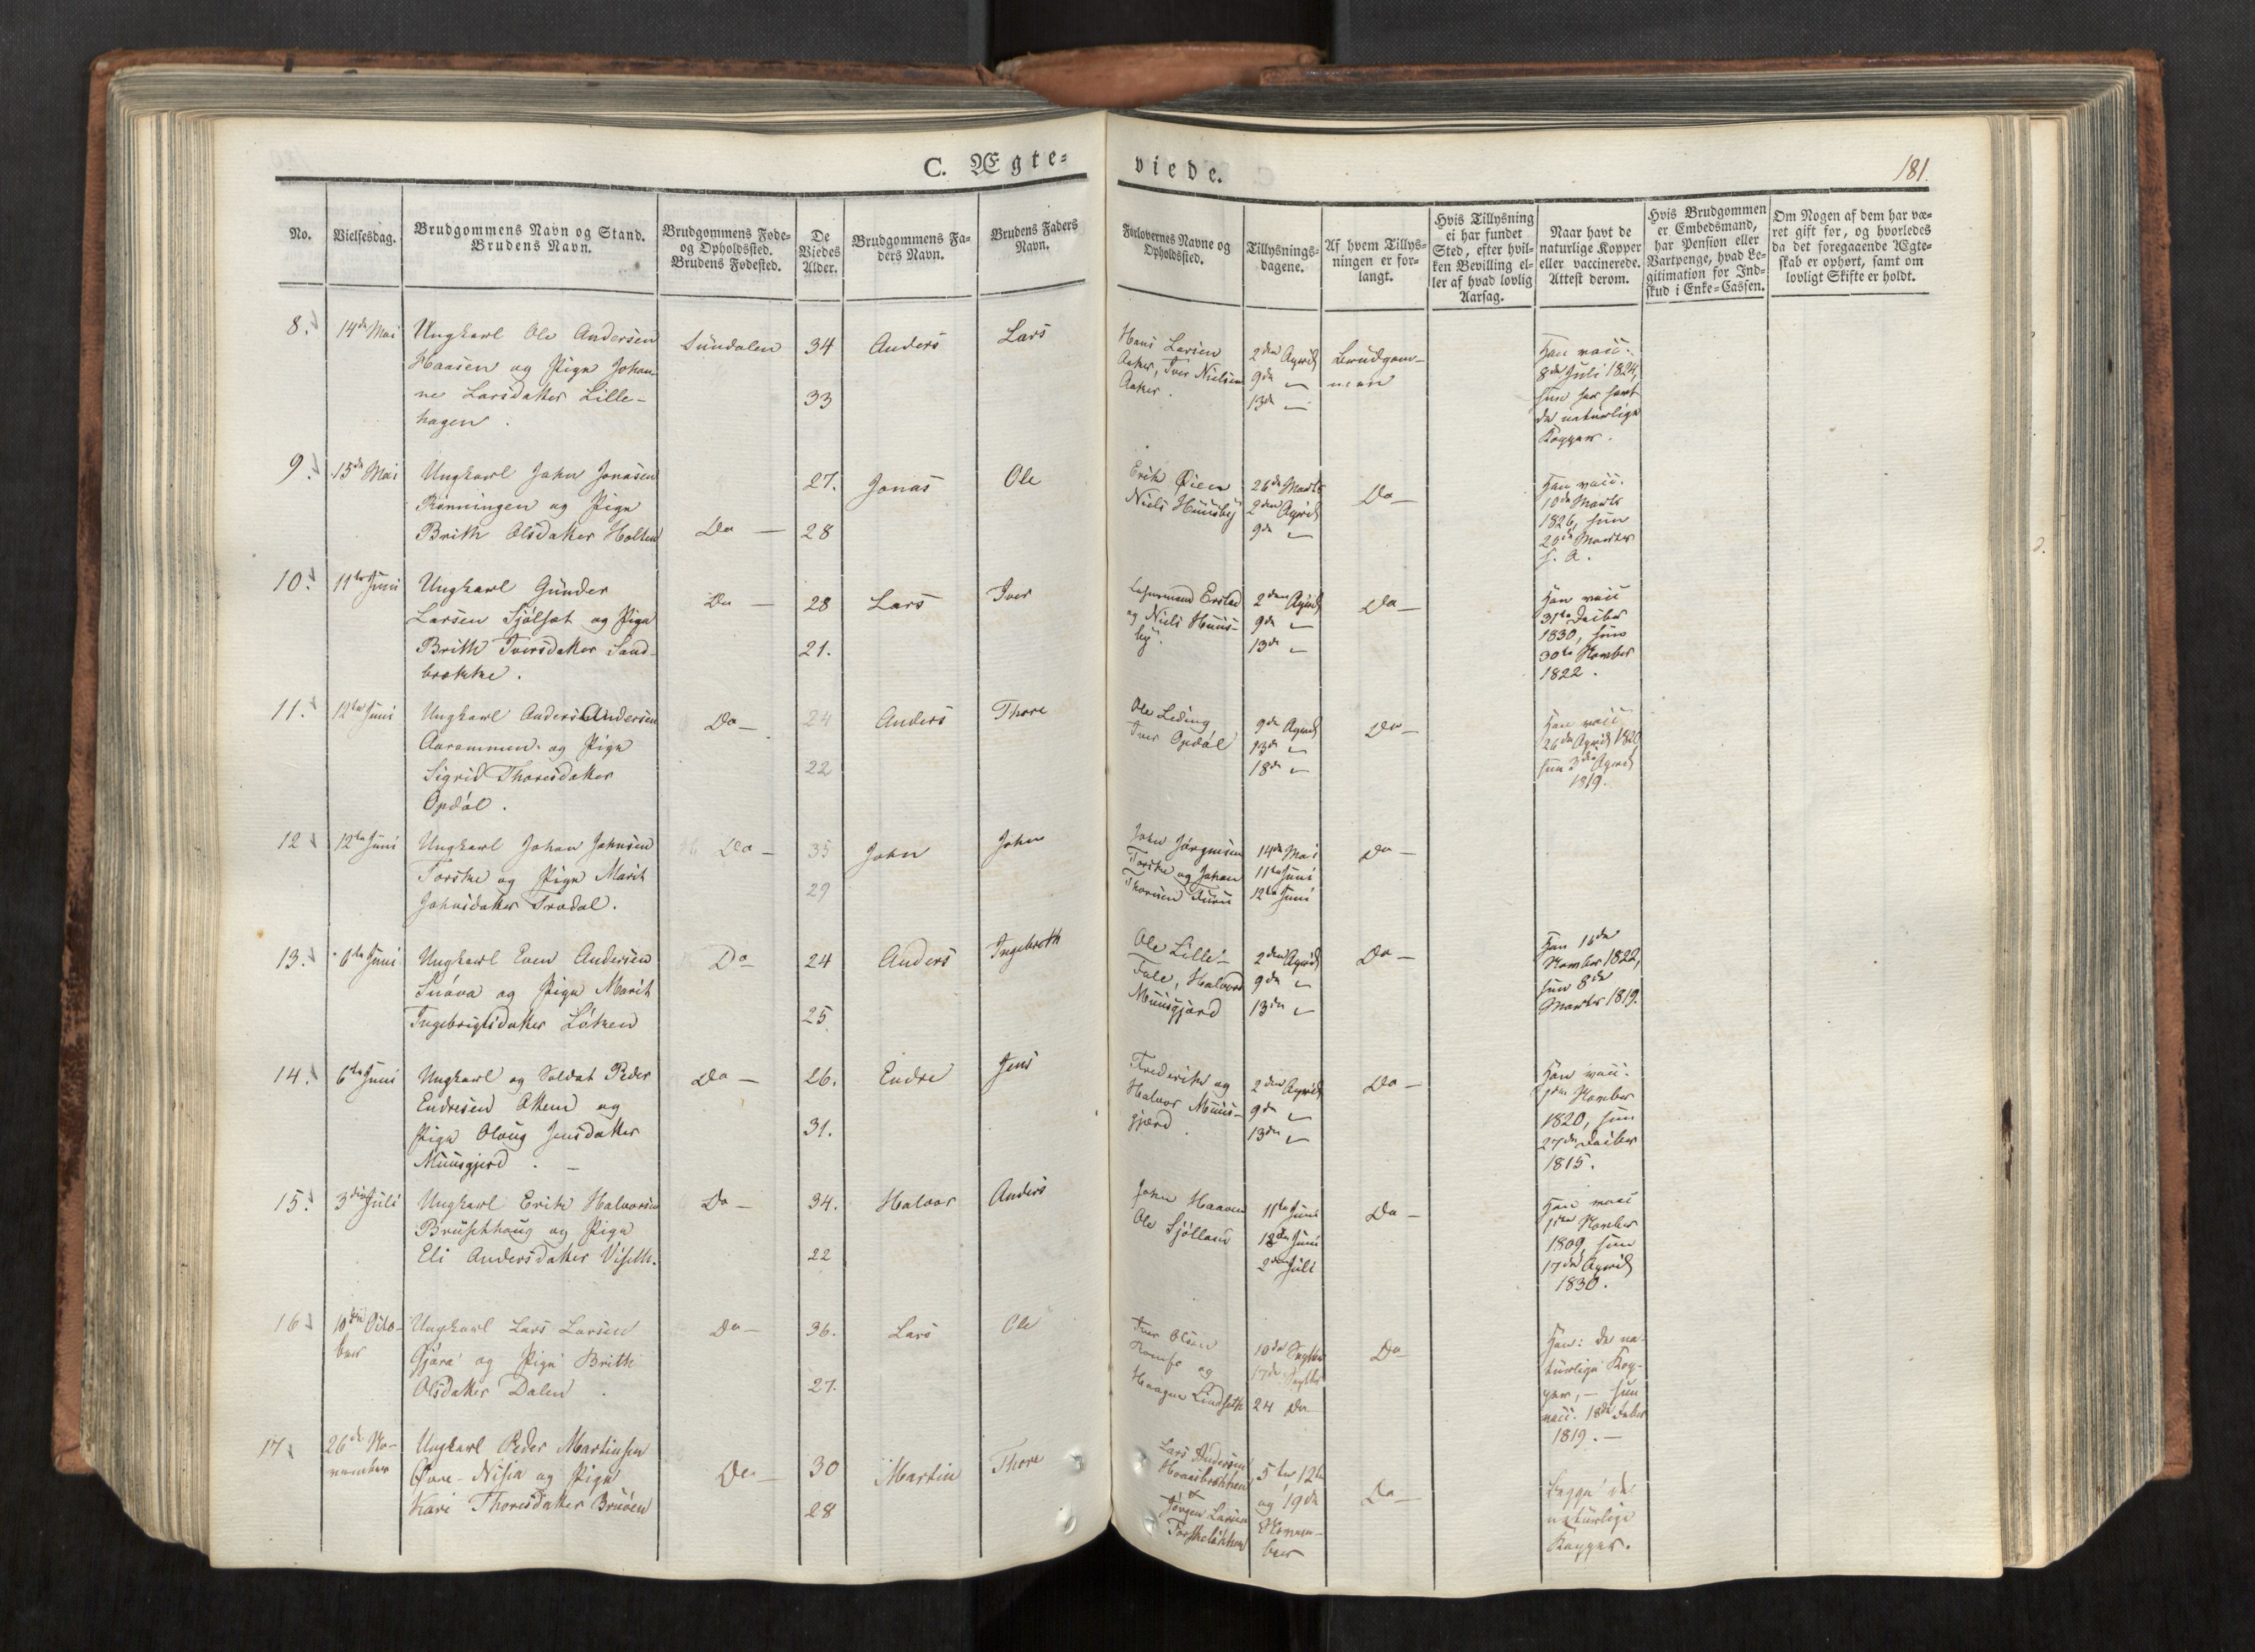 C. Ægte-
viede.
181.
No.
Vielsesdag.
Brudgommens Navn og Stand.
Brudens Navn.
Brudgommens Føde-
og Opholdssted.
Brudens Fødested.
De
Viedes
Alder.
Brudgommens Fa-
ders Navn.
Brudens Faders
Navn.
Forlovernes Navne og
Opholdssted.
Tillysnings-
dagene.
Af hvem Tillys-
ningen er for-
langt.
Hvis Tillysning
ei har fundet
Sted, efter hvil-
ken Bevilling el-
ler af hvad lovlig
Aarsag.
Naar havt de
naturlige Kopper
eller vaccinerede.
Attest derom.
Hvis Brudgommen
er Embedsmand,
har Pension eller
Vartpenge, hvad Le-
gitimation for Ind-
skud i Enke-Cassen.
Om Nogen af dem har væ-
ret gift før, og hvorledes
da det foregaaende Ægte-
skab er ophørt, samt om
lovligt Skifte er holdt.
8.
14de Mai
Ungkarl Ole Andersen
Haasen og Pige Johan-
ne Larsdatter Lille-
hagen.
Sundalen
34
33
Anders
Lars
Hans Larsen
Aaker, Iver Nielsen
Aaker.
2den April
9de
13de
Brudgom-
men
Han vacc.
8de Juli 1824,
hun har havt
de naturlige
Kopper.
9.
15de Mai
Ungkarl John Jonasen
Rønningen og Pige
Brith Olsdatter Holten
Do
27.
28
Jonas
Ole
Erik Øien
Niels Huusby
26de Marts
2den April
9de
Do
Han vacc.
10de Marts
1826, hun
s. A.
10.
11te Juni
Ungkarl Gunder
Larsen Sjølset og Pige
Brith Iversdatter Sand-
brække.
Do
28
21.
Lars
Iver
Lehnsmand Erstad
og Niels Huus-
by.
2den April
9de
13de
Do
Han vacc
31te Decbr
1830, hun
30te Novmber
1822.
11.
12te Juni
Ungkarl Anders Andersen
Aarammen og Pige
Sigrid Thoresdatter
Opdøl.
Do
24
22
Anders
Thore
Ole Leding
Iver Opdøl
9de April
13de
18de
Do
Han vacc
26de April 1820
hun 3die April
1819.
12
12te Juni
Ungkarl Johan Johnsen
Forske og Pige Marit
Johnsdatter Trædal.
Do
35
29
John
John
John Jørgensen
Forske og Johan
Thoresen Furu
14de Mai
11te Juni
12te Juni
Do
13.
6te Juni
Ungkarl Even Andersen
Snøva og Pige Marit
Ingebrigtsdatter Løken
Do
24
25.
Anders
Ingebreth
Ole Lille-
Fale, Halvor
Muusgjerd
2den April
9de
13de
Do
Han 16de
Novmber 1822,
hun 8de
Marts 1819.
14.
6te Juni
Ungkarl og Soldat Peder
Endresen Ottem og
Pige Oloug Jensdatter
Muusgjerd.
Do
26.
31.
Endre
Jens
Frederik og
Halvor Muus-
gjerd.
2den April
9de
13de
Do
Han vacc.
1ste Novmber
1820, hun
27de Decbr
1815.
15.
3die Juli
Ungkarl Erik Halvorsen
Bruskhoug og Pige
Eli Andersdatter Viseth.
Do
34.
22
Halvor
Anders
John Haaven
Ole Sjølland
11te Juni
18de Juni
2den Juli
Do
Han vacc
1ste Novmber
1809, hun
17de April
1830.
16
10de Octo-
ber
Ungkarl Lars Larsen
Gjøra og Pige Brith
Olsdatter Dalen.
Do
36.
27.
Lars
Ole
Iver Olsen
Romfo og
Haagen Lindseth
10de Septbr
17de Septbr
24 Do
Do
Han: de na-
turlige Kop-
per, — hun
vacc. 18de Decbr
1819.—
17
26de No-
vember
Ungkarl Peder Martinsen
Øvre-Nisia og Pige
Kari Thoresdatter Bruøen
Do
30
28
Martin
Thore
Lars Andersen
Hovsbrækken
&
Jørgen Larsen
Forskeløkken
5te 12te
og 19de
Novem-
ber
Do
Begge de
naturlige
Kopper.